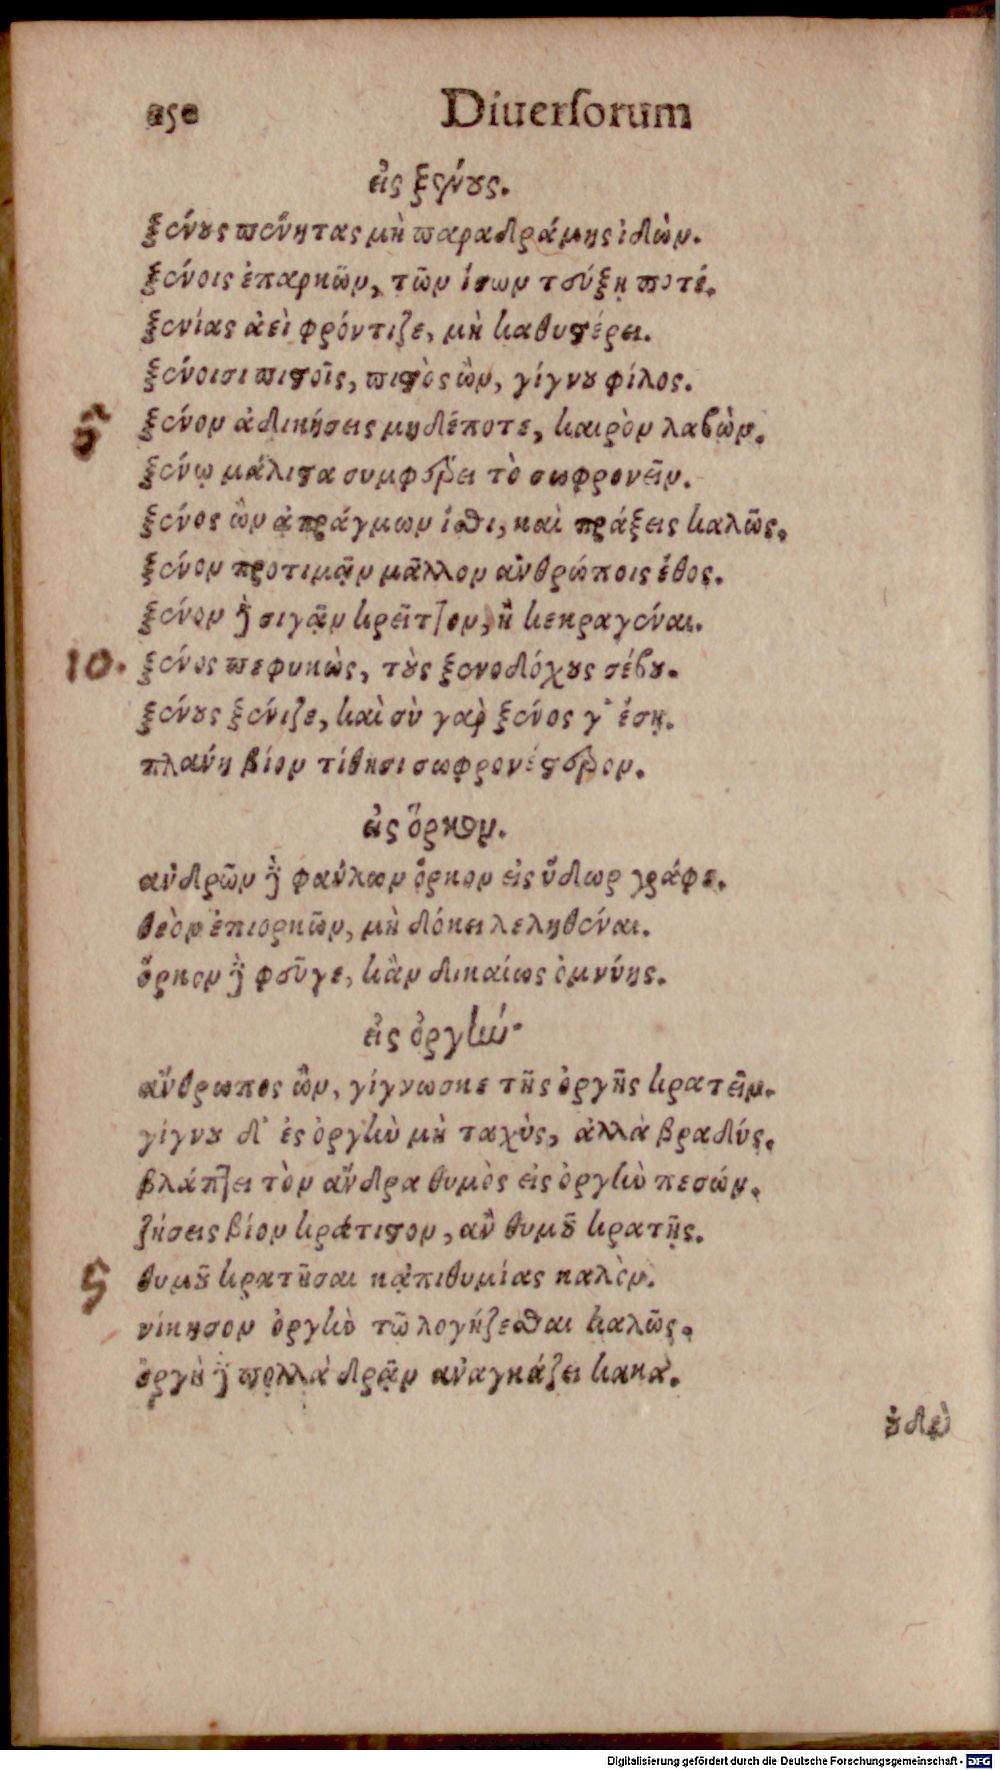 250 Diuerſorum
εἰς ξένους.
ξένους πένητας μὴ παραδράμῃς ἰδών.
ξένοις ἐπαρκῶν, τῶν ἴσων τεύξῃ ποτέ.
ξενίας ἀεὶ φρόντιζε, μὴ καθυστέρει.
ξένοισι πιστοῖς, πιστὸς ὢν, γίγνου φίλος.
5 ξένον ἀδικήσεις μηδέποτε, καιρὸν λαβὼν.
ξένῳ μάλιστα συμφέρει τὸ σωφρονεῖν.
ξένος ὢν ἀπράγμων ἴσθι, καὶ πράξεις καλῶς.
ξένον προτιμᾷν μᾶλλον ἀνθρώποις ἔθος.
ξένον δὲ σιγᾷν κρεῖττον, ἢ κεκραγέναι.
10. ξένος πεφυκὼς, τοὺς ξενοδόχους σέβου.
ξένους ξένιζε, καὶ σὺ γὰρ ξένος γ' ἔσῃ.
πλάνη βίον τίθησι σωφρονέστερον.
εἰς ὅρκον.
ἀνδρῶν δὲ φαύλων ὅρκον εἰς ὕδωρ γράφε.
θεὸν ἐπιορκῶν, μὴ δόκει λεληθέναι.
ὅρκον δὲ φεῦγε, κἂν δικαίως ὀμνύῃς.
εἰς ὀργήν.
ἄνθρωπος ὢν, γίγνωσκε τῆς ὀργῆς κρατεῖν.
γίγνου δ' ἐς ὀργὴν μὴ ταχὺς, ἀλλὰ βραδύς.
βλάπτει τὸν ἄνδρα θυμὸς εἰς ὀργὴν πεσών.
ζήσεις βίον κράτιστον, ἂν θυμοῦ κρατῇς.
5 θυμοῦ κρατῆσαι κἀπιθυμίας καλὸν.
νίκησον ὀργὴν τῷ λογίζεσθαι καλῶς.
ὀργὴ δὲ πολλὰ δρᾷν ἀναγκάζει κακά.
οὐδεὶ
Digitalisierung gefördert durch die Deutsche Forschungsgemeinschaft - DFG